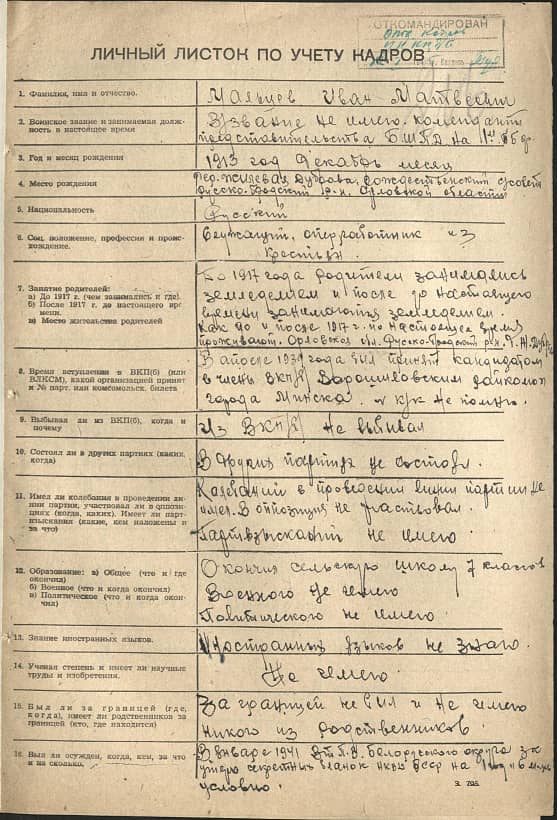 ОТКОМАНДИРОВАН
ЛИЧНЫЙ ЛИСТОК ПО УЧЕТУ КАДРОВ
1. Фамилия, имя и отчество.
Иван Матвеевич
2. Воинское звание и занимаемая долж-
ность в настоящее время
В/звание не имею. комендант
представительства БШПД на
3. Год и месяц рождения
1913 год декабрь месяц
4. Место рождения
Дер. Дубрава, Рождественский с/совета
р-н. Орловской области
5. Национальность
Русский
6. Соц. положение, профессия и проис-
хождение.
Служащий, оперработник из
Крестьян.
7. Занятие родителей:
а) До 1917 г. (чем занимались и где).
б) После 1917 г. до настоящего вре
мени.
в) Место жительства родителей
До 1917 года родители занимались
земледелием и после до настоящего
времени занимаются земледелием.
Как до и после 1917 г. по настоящее время
проживают. Орловская обл.
8. Время вступления в ВКП(б) (или
ВЛКСМ), какой организацией принят
и № парт. или комсомольск. билета
В апреле 1939 года был принят кандидатом
в члены ВКП/б/ Ворошиловским райкомом
города Минска. № к/к не помню.
9. Выбывал ли из ВКП(б), когда и
почему
Из ВКП/б/ не выбывал
10. Состоял ли в других партиях (каких,
когда)
В других партиях не состоял.
11. Имел ли колебания в проведении ли-
нии партии, участвовал ли в оппози-
циях (когда, каких). Имеет ли парт-
взыскания (какие, кем наложены и
за что)
Колебаний в проведении линии партии не
имел. В оппозиция не участвовал.
Партвзысканий не имею.
12. Образование: а) Общее (что и где
окончил)
б) Военное (что и когда окончил)
в) Политическое (что и когда окон-
чил)
Окончил сельскую школу 7 классов
Военного не имею
Политического не имею.
13. Знание иностранных языков.
Иностранных языков не знаю.
14. Ученая степень и имеет ли научные
труды и изобретения.
Не имею.
15. Был ли за границей (где,
когда), имеет ли родственников за
границей (кто, где находится)
За границей не был и не имею
никого из родственников.
16. Был ли осужден, когда, кем, за что
и на сколько.
В январе 1941 Белорусского округа за
утерю секретных бланок НКВД БССР на 1 год и 6 м-цев
условно.
З. 795.